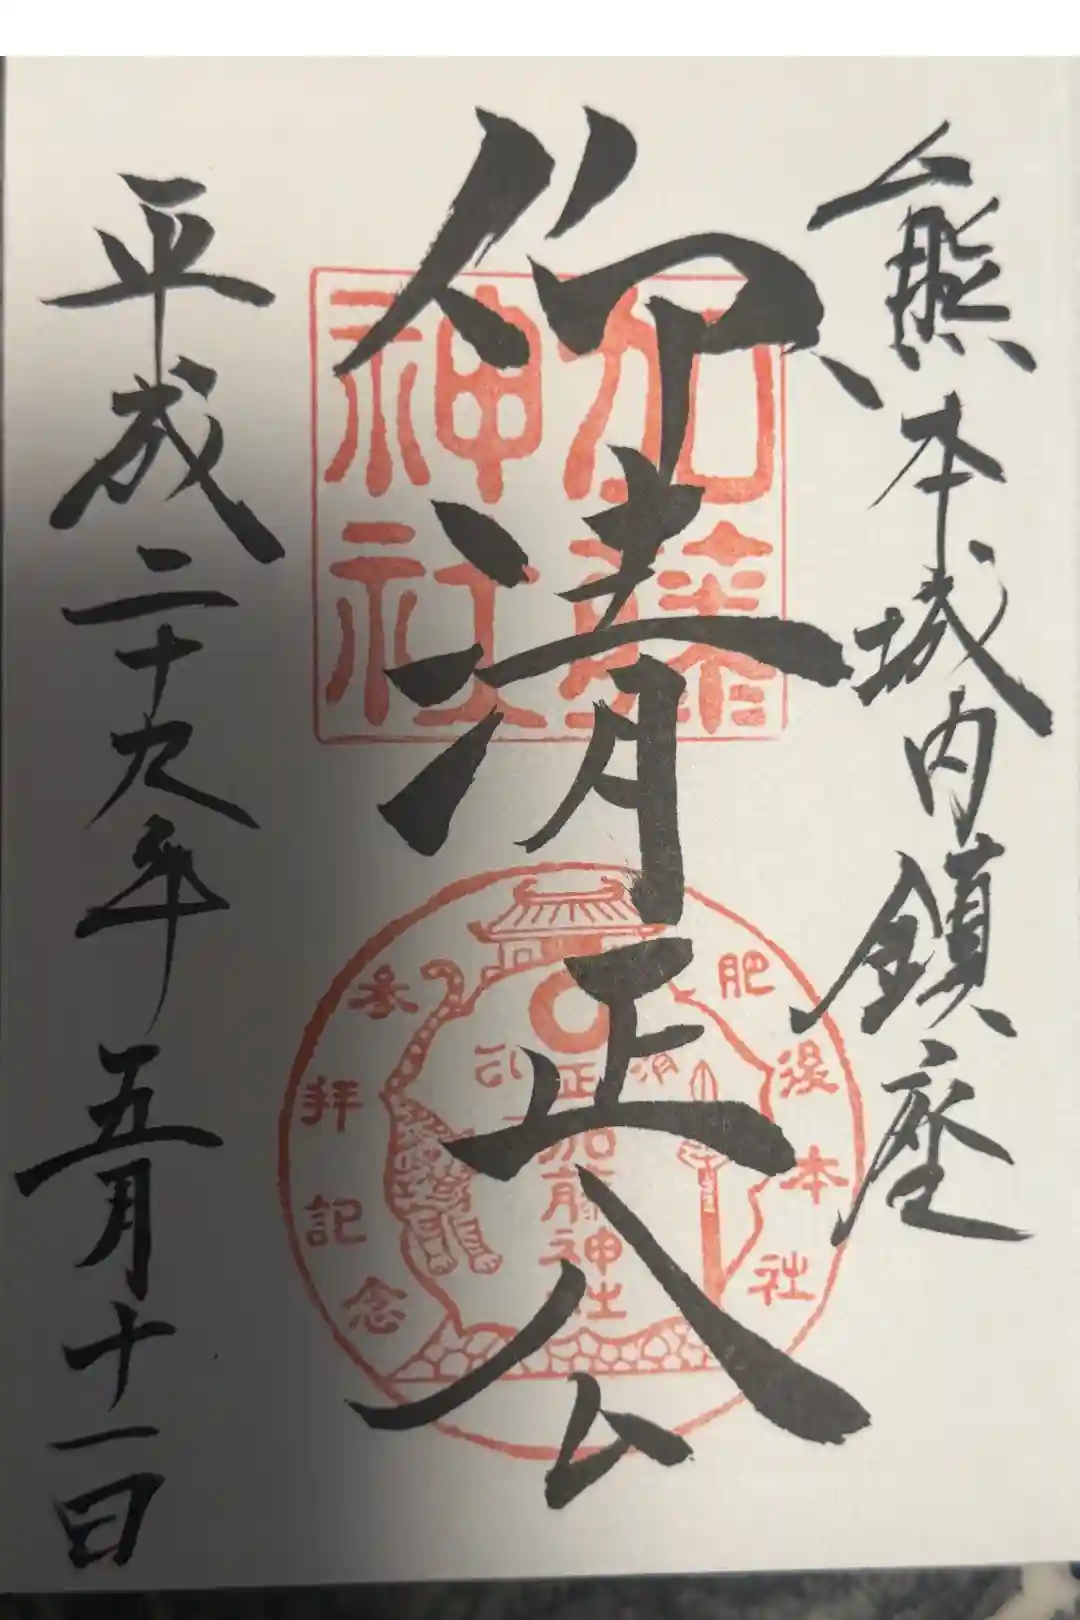 熊本城内鎮座
仰清正公
平成二十九年五月十一日
加藤
神社
肥後本社
参拝記念
清正公
加藤神社